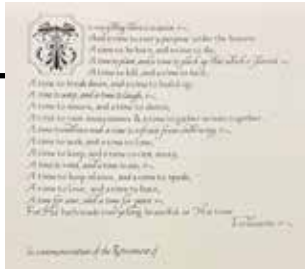 To everything there is a season
And a time to every purpose under the heaven
A time to be born, and a time to die,
A time to plant, and a time to pluck up that which is planted
A time to kill, and a time to heal,
A time to break down, and a time to build up,
A time to weep, and a time to laugh,
A time to mourn, and a time to dance,
A time to cast away stones & a time to gather stones together
A time to embrace and a time to refrain from embracing
A time to seek, and a time to lose,
A time to keep, and a time to cast away,
A time to rend, and a time to sew,
A time to keep silence, and a time to speak,
A time to love, and a time to hate,
A time for war, and a time for peace
For He hath made everything beautiful in His time
Ecclesiastes
In commemoration of the Retirement of